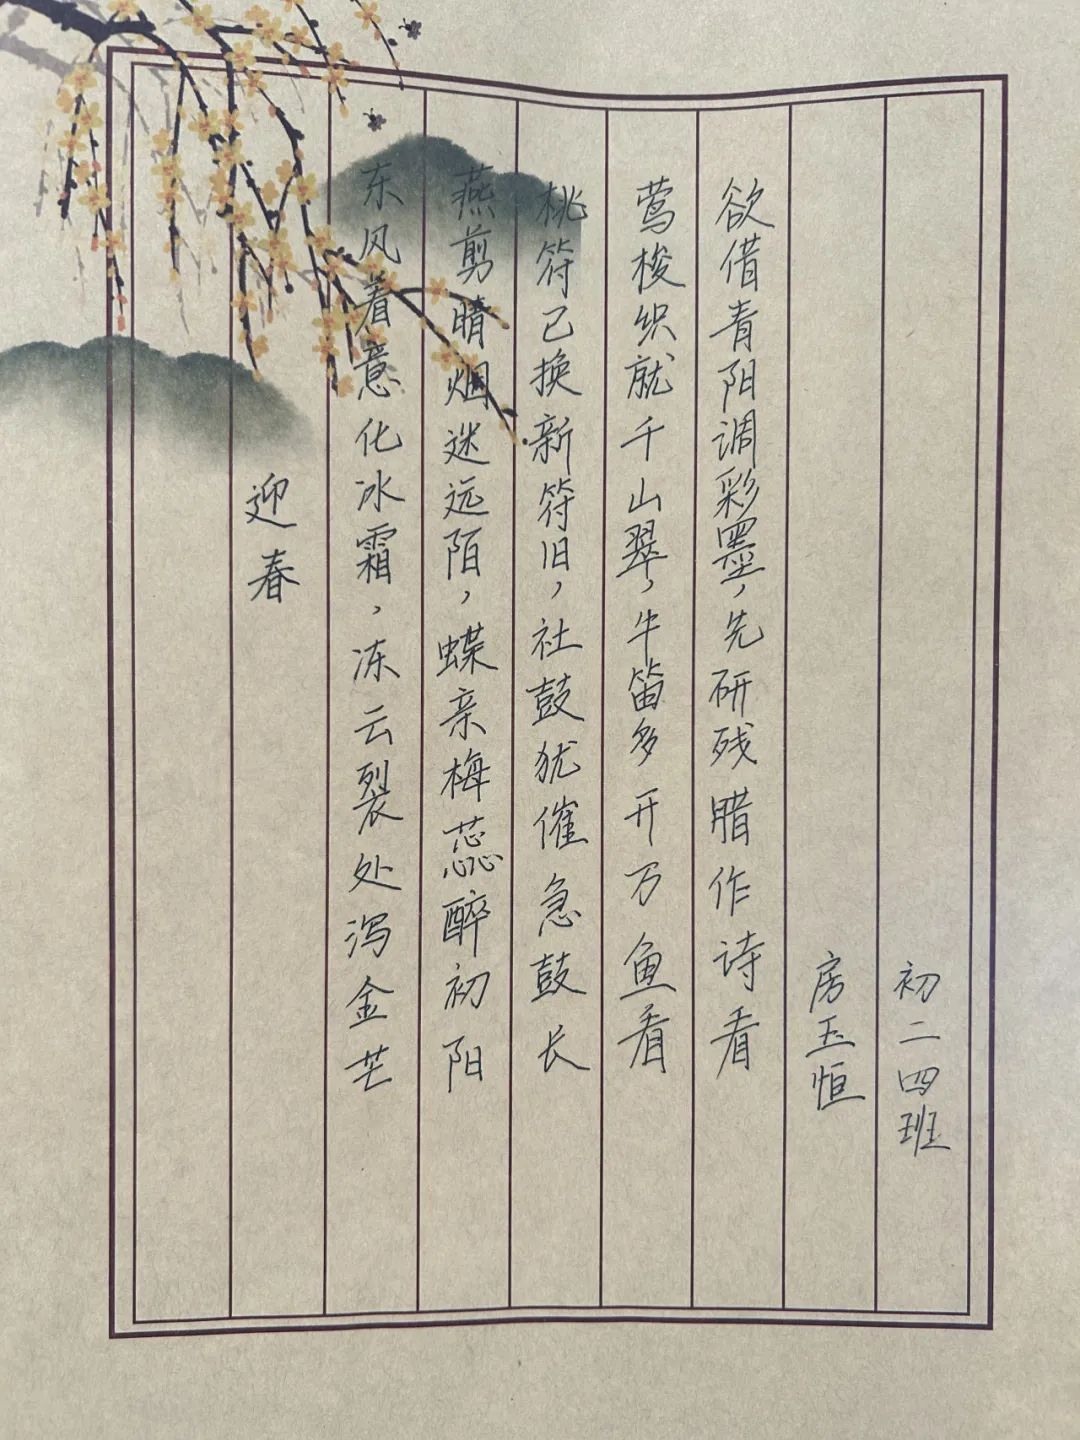 迎春
东风着意化冰霜，冻云裂处泻金芒
燕剪晴烟迷远陌，蝶亲梅蕊醉初阳
桃符已换新符旧，社鼓犹催急鼓长
莺梭织就千山翠，牛笛多开万鱼看
欲借青阳调彩墨，先研残腊作诗看
房玉恒
初二四班